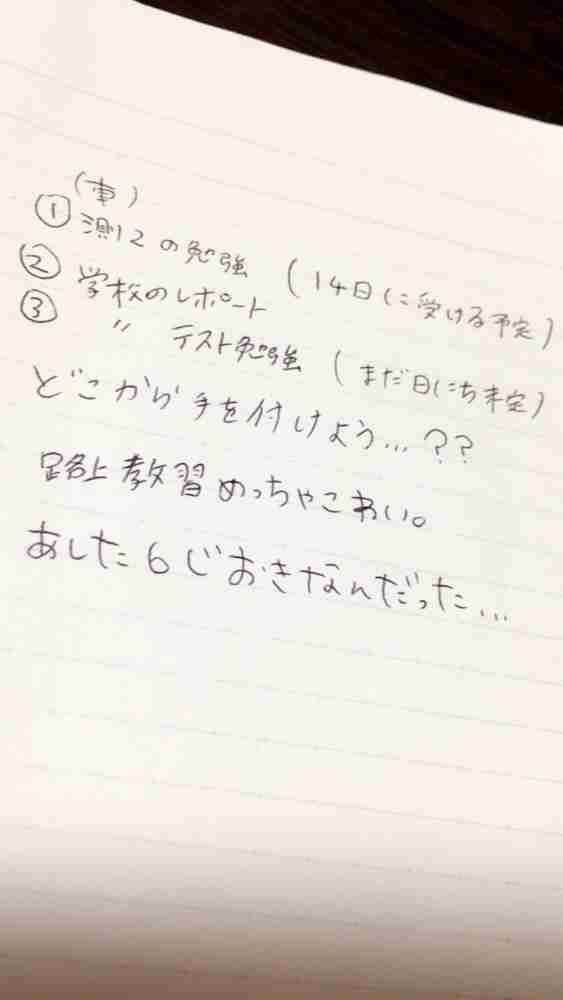 (車)
① 測12の勉強 (14日に受ける予定)
② 学校のレポート
③ 〃 テスト勉強 (まだ日にち未定)
どこから手を付けよう...??
路上教習めっちゃこわい。
あした6じおきなんだった...